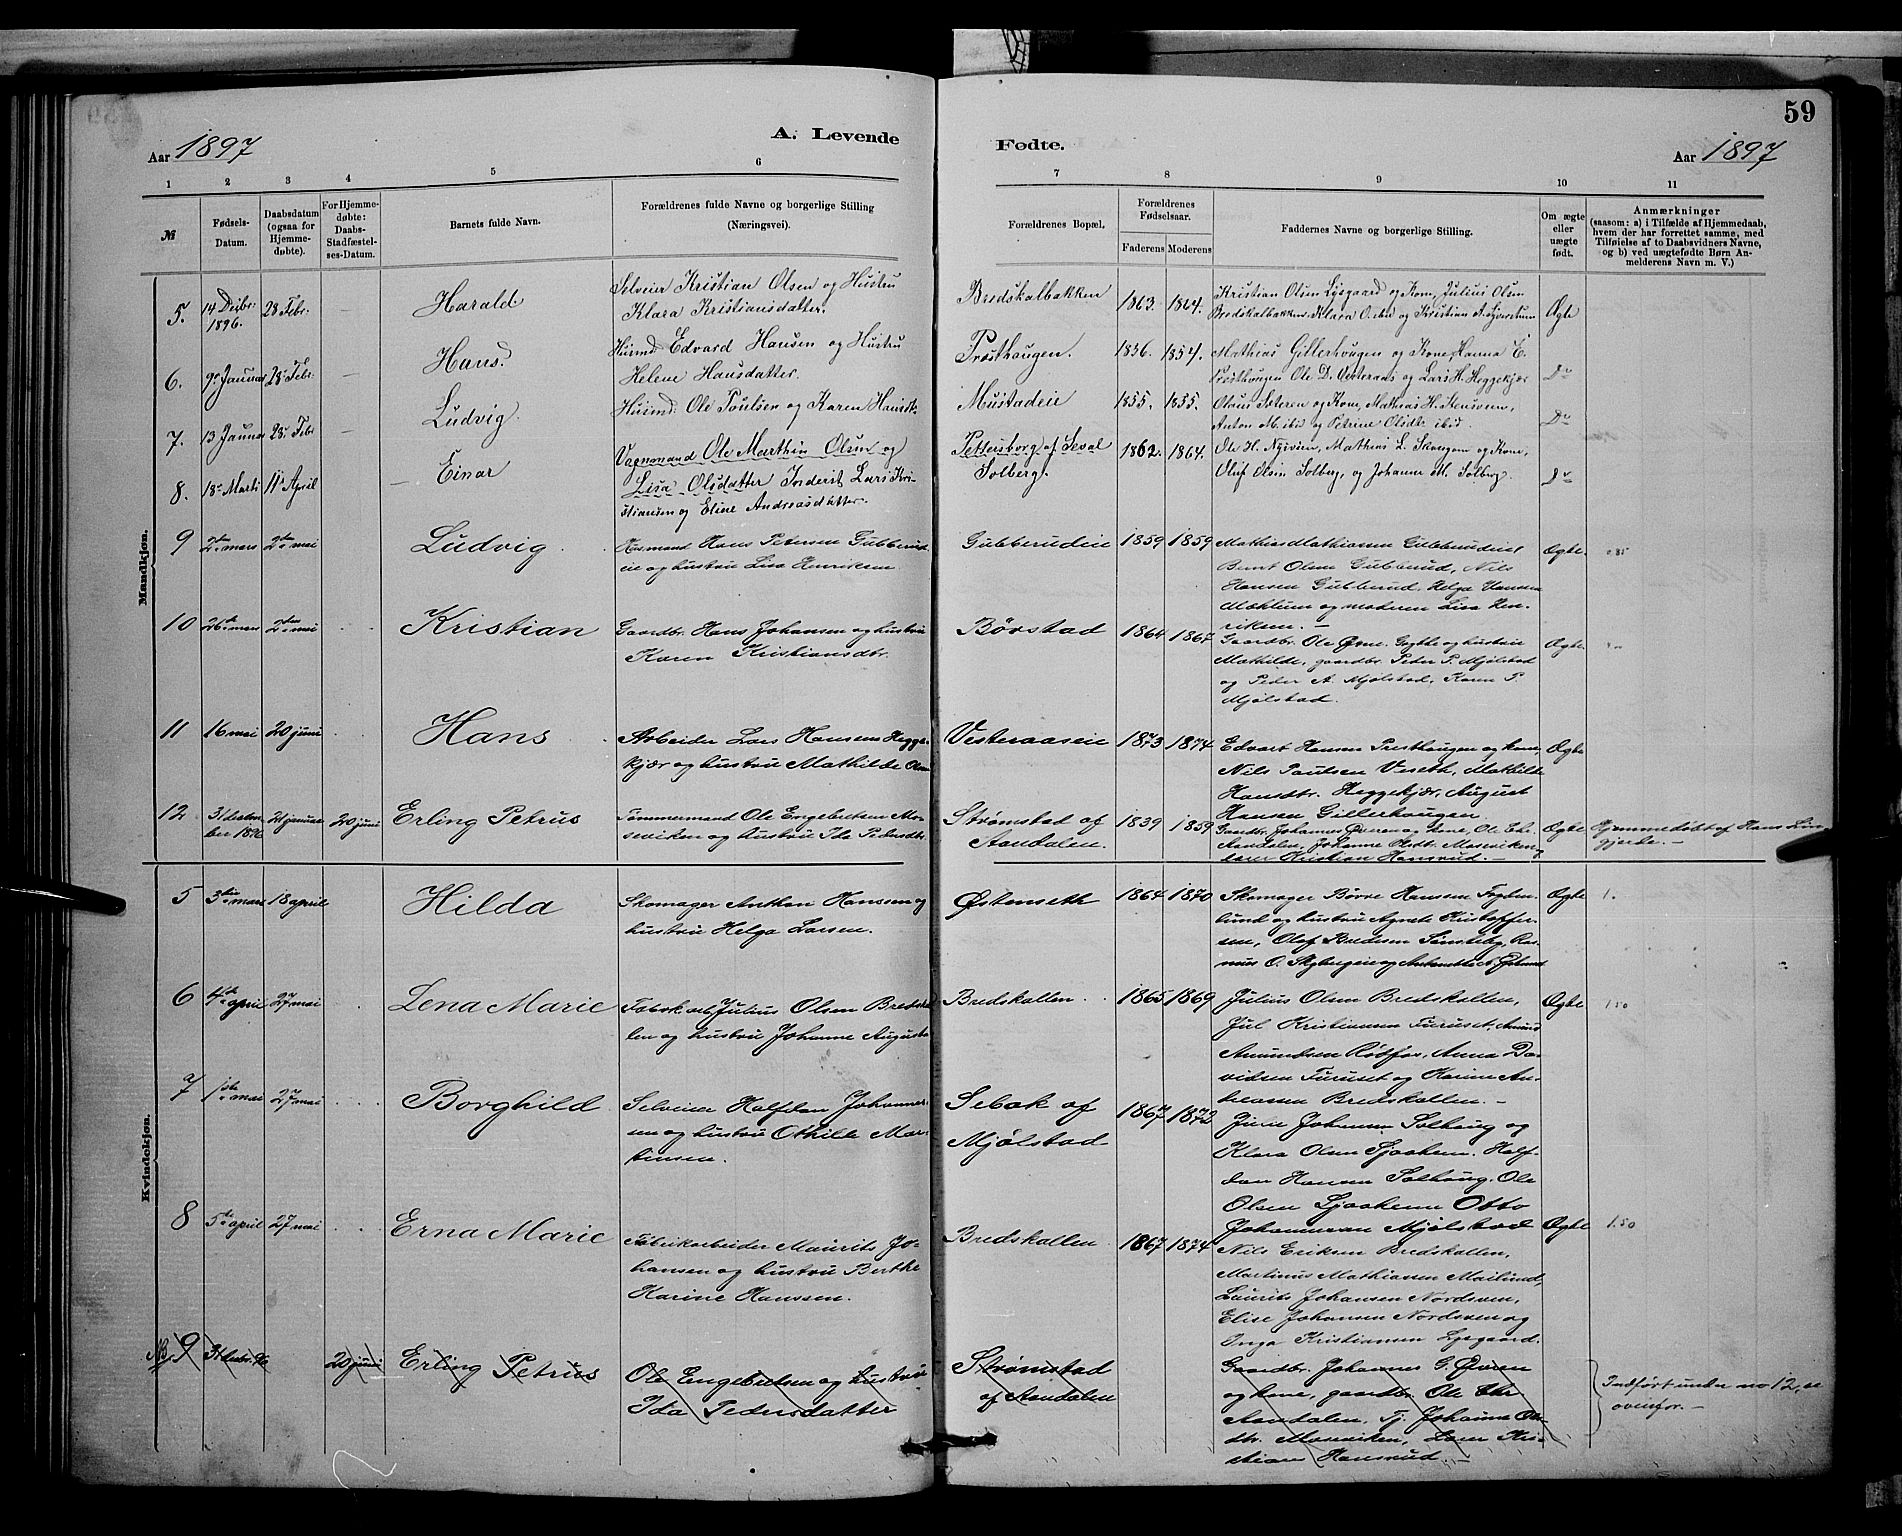 59
A. Levende
Fødte.
Aar 1897
Aar 1897
1 2 3 4 5 6 7 8 9 10 11
№
Fødsels-
Datum.
Daabsdatum
(ogsaa for
Hjemme-
døbte).
For Hjemme-
døbte:
Daabs-
Stadfæstel-
ses-Datum.
Barnets fulde Navn.
Forældrenes fulde Navne og borgerlige Stilling
(Næringsvei).
Forældrenes Bopæl.
Forældrenes
Fødselsaar.
Faderens Moderens
Faddernes Navne og borgerlige Stilling.
Om ægte
eller
uægte
født.
Anmærkninger
(saasom: a) i Tilfælde af Hjemmedaab,
hvem der har forrettet samme, med
Tilføielse af to Daabsvidners Navne,
og b) ved uægtefødte Børn An-
melderens Navn m. V.)
Mandkjøn.
5. 14 Decbr. 1896. 28 Febr. Harald
Selveier Kristian Olsen og Hustru
Klara Kristiansdatter.
Bredskalbakken 1863. 1864.
Kristian Olsen Lysgaard og Kone, Julius Olsen
Bredskalbakken, Klara O. ibd og Kristian
Ægte
6. 9 Januar 28 Febr. Hans.
Husmd Edvard Hansen og Hustru
Helene Hansdatter.
Præsthaugen. 1856. 1854.
Mathias Gillerhaugen og Kone, Hanna E.
Præsthaugen Ole D. Vesteraas og Lars H. Heggekjær
Do
7. 13 Januar 28 Febr Ludvig
Husmd: Ole Poulsen og Karen Hansdt.
Mustadeie 1855. 1855.
Olaus Sæteren og Kone, Mathias H. Stensveen,
Anton M. ibid og Petrine Olsdtr ibid.
Do
8. 18 Marts 11 April Einar
Vognmand Ole Marthin Olsen og
Lisa Olsdatter Inderst Lars Kri-
stiansen og Eline Andreasdatter.
Pettersborg af Seval
Solberg. 1862. 1864.
Ole H. Nysveen, Mathias L. Skaugom og Kone,
Oluf Olsen Solberg, og Johanne M. Solberg.
Do
9 2den mars 2den mai Ludvig
Husmand Hans Petersen Gubberud-
eie og hustru Lisa Henriksen.
Gubberudeie 1859 1859
Mathias Mathiassen Gubberudeie,
Bernt Olsen Gubberud, Nils
Hansen Gubberud, Helga Hansen
Mæhlum og moderen Lisa Hen-
riksen. —
Ægte.
10 26de mars 2den mai Kristian
Gaardbr. Hans Johansen og hustru
Karen Kristiansdtr.
Børstad 1864 1867
Gaardbr. Ole Øvre Gogtle og hustru
Mathilde, gaardbr. Peder P. Mjølstad
og Peder A. Mjølstad, Karen P.
Mjølstad.
Ægte.
11 16 mai 20 juni Hans
Arbeider Lars Hansen Hegge-
kjær og hustru Mathilde Olsen
Vesteraaseie 1873 1874
Edvart Hansen Presthaugen og kone,
Nils Paulsen Veseth, Mathilde
Hansdtr. Heggekjær, August
Hansen Gillerhaugen.
Ægte
12 31 decem-
ber 1896 21 januar 20 juni Erling Petrus
Tømmermand Ole Engebretsen Mo-
seviken og hustru Ida Pedersdtr.
Strømstad af
Aandalen. 1839 1859
Gaardbr. Johannes Øveren og Kone, Ole Chr.
Aandalen, Johanne Olsdtr. Moseviken og
Lærer Kristian Hansrud. —
Ægte
Hjemmedøbt af Hans Lun-
gjerde. —
Kvindekjøn.
5 3die mars 18 april Hilda
Skomager Anthon Hanssen og
hustru Helga Larsen.
Østenseth 1864 1870
Skomager Børre Hanssen Fogden-
lund og hustru Agnete Kristoffer-
sen, Olaf Bredesen Simsteby, Ras-
mus O. Skybergeie og
Ægte 1.
6 4de april 27 mai Lena Marie
Fabrikarb Julius Olsen Bredskal-
len og hustru Johanne Augusta
Bredskallen. 1865 1869
Julius Olsen Bredskallen,
Jul Kristiansen Furuset, Amund
Amundsen Rødfos, Anna Da-
vidsen Furuset og Karine An-
dreasen Bredskallen. —
Ægte 1.50
7 1ste mai 27 mai Borghild
Selveier Halfdan Johannes-
sen og hustru Othilie Mar-
tinsen.
Sebak af
Mjølstad 1867 1872
Julie Johansen Solhaug og
Klara Olsen Sjaaheim. Half-
dan Hansen Solhaug. Ole
Olsen Sjaaheim Otto
Johannessen Mjølstad
8 5te april 27 mai Erna Marie
Fabrikarbeider Maurits Jo-
hansen og hustru Berthe
Karine Hanssen.
Bredskallen. 1867 1874
Nils Eriksen Bredskallen,
Martinus Mathiassen Mailund,
Laurits Johansen Nordsven,
Elise Johansen Nordsven og
Inga Kristiansen Lysgaard.
Ægte 1.50
Nb. 9 31 decbr. 96 20 juni Erling Petrus
Ole Engebretsen og hustru
Ida Pedersdatter
Strømstad
af Aandalen
Gaardbr. Johannes G. Øveren
og kone, gaardbr. Ole Chr.
Aandalen, Tj. Johanne Ols-
dtr. Moseviken, Lærer Kri-
stian Hansrud. —
Indført under no 12, se
ovenfor. —